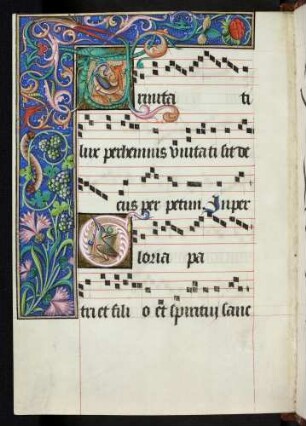 Trinita ti
lux perhennis vnita ti sit de
cus per petim. In per
Gloria pa
tri et fili o et spiritui sanc